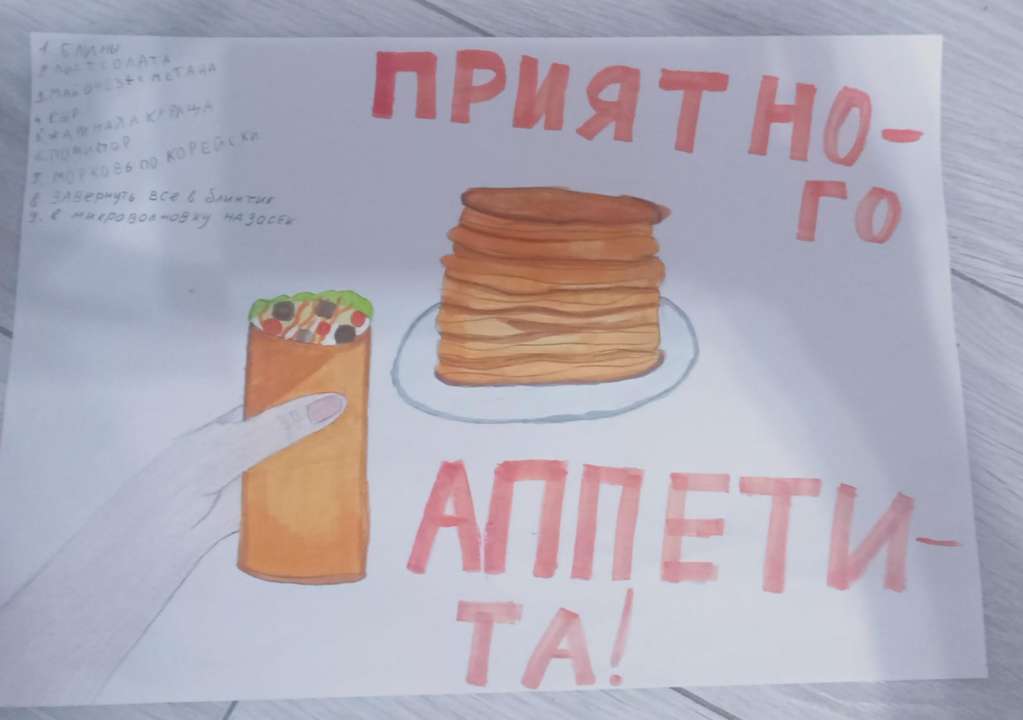 1. БЛИНЫ
2. ЛИСТ САЛАТА
3. МАЙОНЕЗ+СМЕТАНА
4. СЫР
5. ЖАРЕНАЯ КУРИЦА
6. ПОМИДОР
7. МОРКОВЬ ПО КОРЕЙСКИ
8 ЗАВЕРНУТЬ ВСЕ В блинчик
9. В микроволновку НА 30СЕК
ПРИЯТНО-
ГО
АППЕТИ-
ТА!